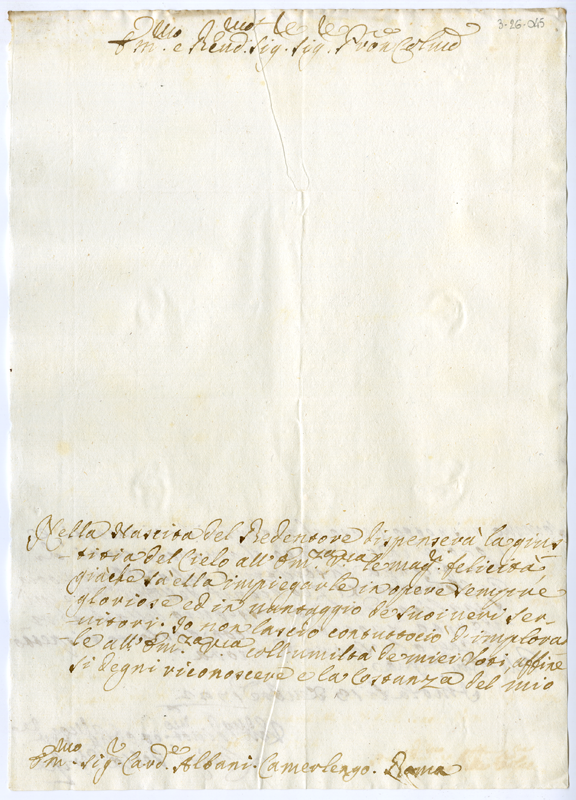 3-26-065
Em.mo e Reud.mo Sig.r Sig.r P.ron Col.mo
Nella Nascita del Redentore dispenserà la gius
titia del Cielo all' Em.za V.ra le mag.ri felicità
giache sa ella impiegarle in opere sempre
gloriose ed in vantaggio de suoi veri ser-
uitori. Io non lascio contuttociò d'implora-
re all' Em.za V.ra coll' umiltà de miei Voti, affine
si degni riconoscere e la Costanza del mio
Em.mo Sig.r Card.e Albani Camerlengo. Roma